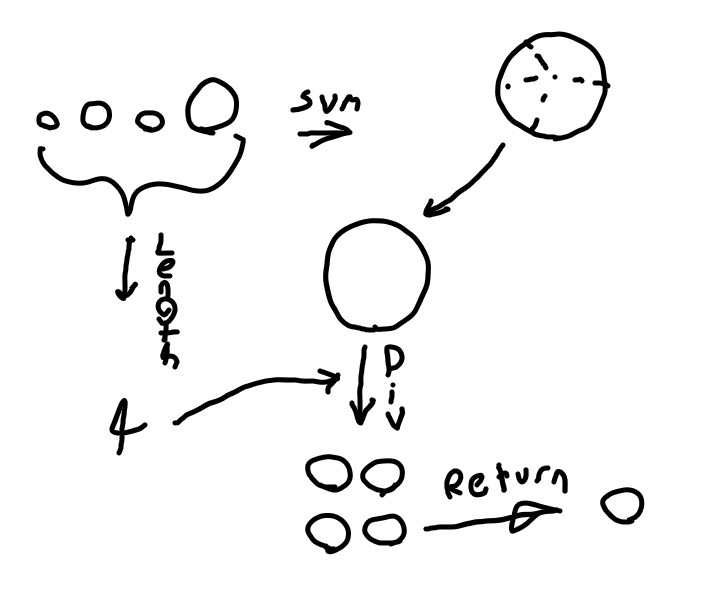 sum
Length
4
Div
Return